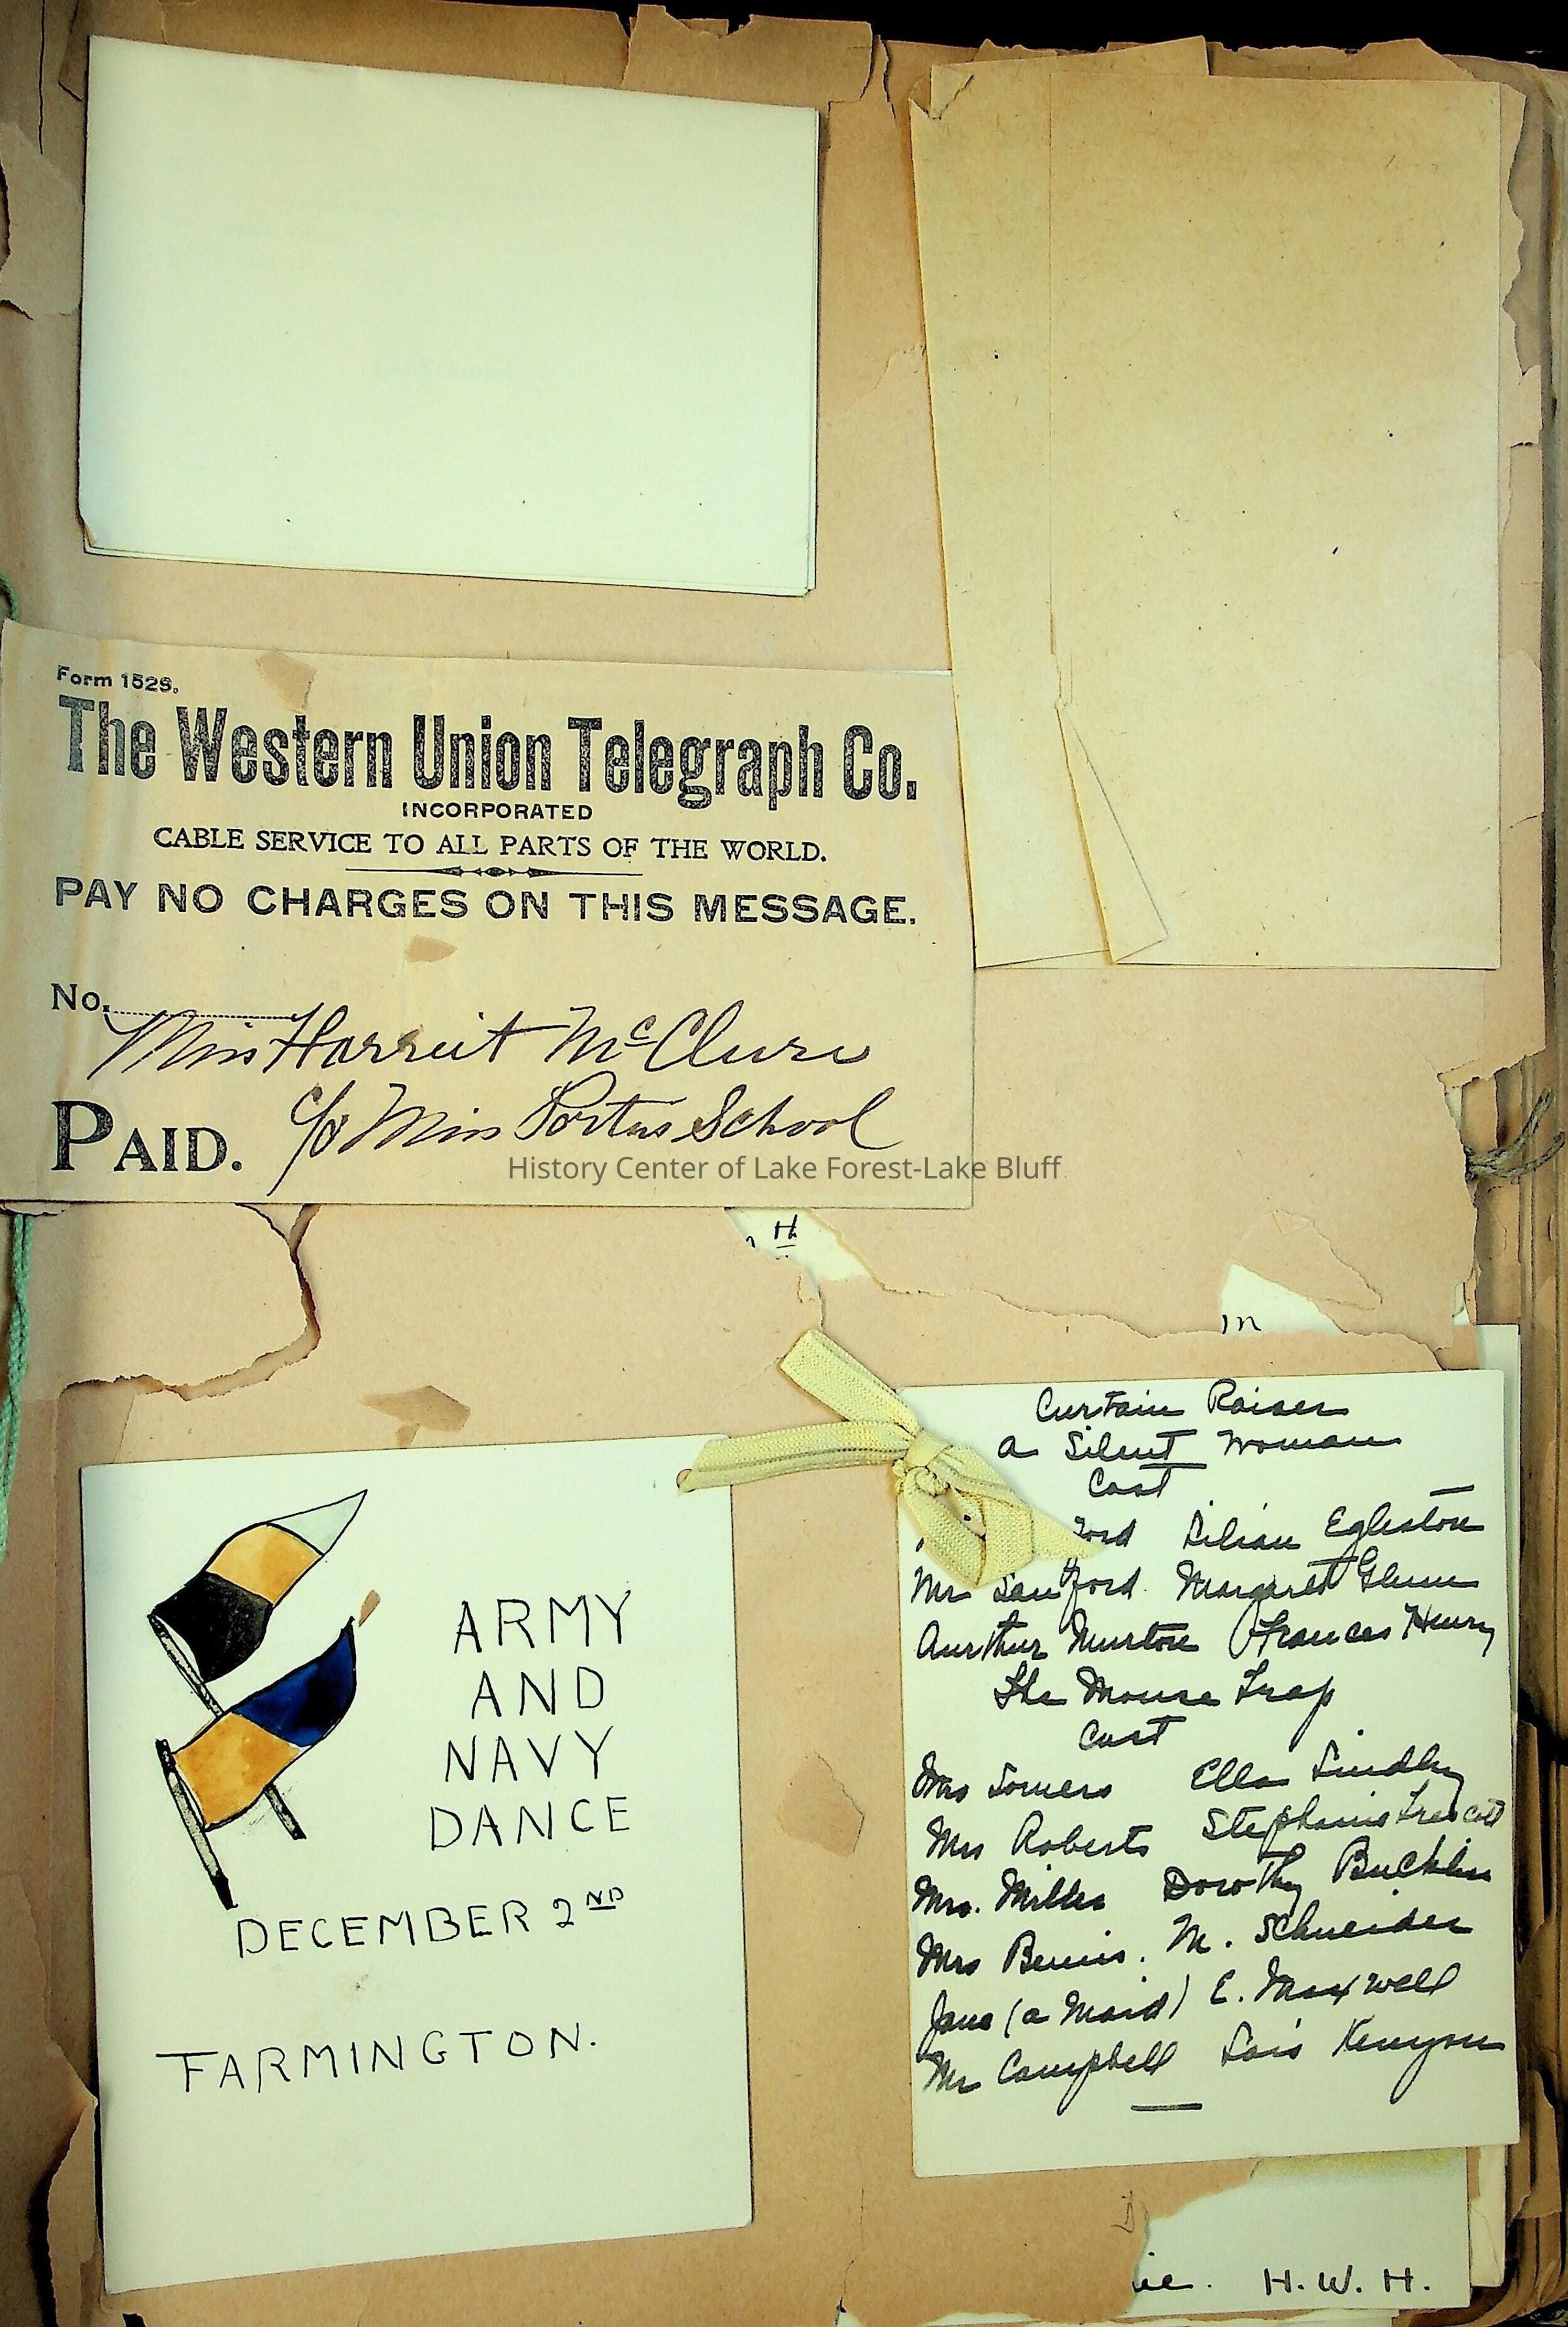 Form 152S.
The Western Union Telegraph Co.
INCORPORATED
CABLE SERVICE TO ALL PARTS OF THE WORLD.
PAY NO CHARGES ON THIS MESSAGE.
No.
Miss Harriet McClure
PAID. c/o Miss Porters School
History Center of Lake Forest-Lake Bluff
th
in
ARMY
AND
NAVY
DANCE
DECEMBER 2ND
FARMINGTON.
Curtain Raiser
A Silent Woman
Cast
ford Lilian Egleston
Mr Sanford Margaret Glenn
Aurthur Murton Frances Henry
The Mouse Trap
Cast
Mrs Somers Ella Lindley
Mrs Roberts Stephanie Trescott
Mrs. Miller Dorothy Bucklin
Mrs Bemis. M. Schneider
Jane (a Maid) E. Maxwell
Mr Campbell Lois Kenyon
H. W. H.